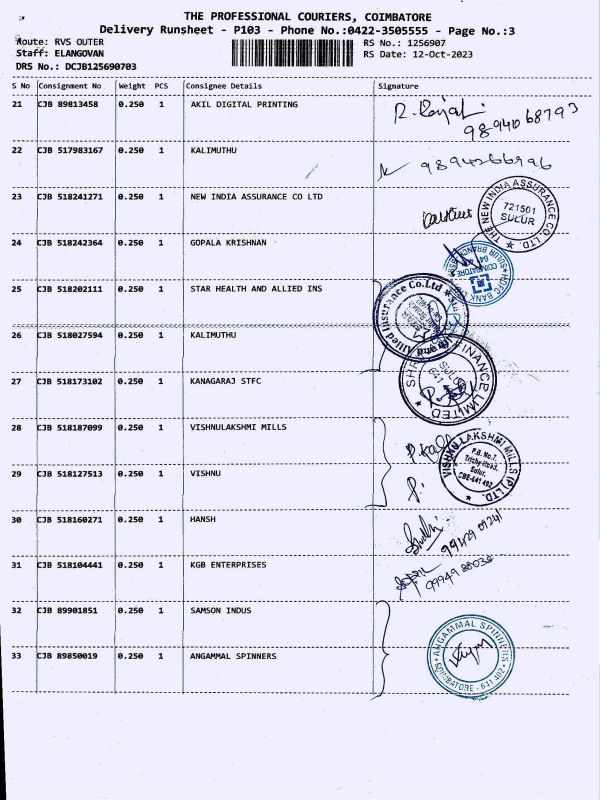 THE PROFESSIONAL COURIERS, COIMBATORE
Delivery Runsheet - P103 - Phone No.:0422-3505555 - Page No.:3
Route: RVS OUTER
RS No.: 1256907
Staff: ELANGOVAN
RS Date: 12-Oct-2023
DRS No.: DCJB125690703
S No Consignment No Weight PCS Consignee Details Signature
21 CJB 89813458 0.250 1 AKIL DIGITAL PRINTING
9894068793
22 CJB 517983167 0.250 1 KALIMUTHU
9894266996
23 CJB 518241271 0.250 1 NEW INDIA ASSURANCE CO LTD
THE NEW INDIA ASSURANCE CO. LTD.
721501
SULUR
24 CJB 518242364 0.250 1 GOPALA KRISHNAN
HDFC BANK
COIMBATORE
SULUR BRANCH
25 CJB 518202111 0.250 1 STAR HEALTH AND ALLIED INS
Allied Insurance Co.Ltd
26 CJB 518027594 0.250 1 KALIMUTHU
27 CJB 518173102 0.250 1 KANAGARAJ STFC
FINANCE LIMITED
SULUR
28 CJB 518187099 0.250 1 VISHNULAKSHMI MILLS
VISHNU LAKSHMI MILLS (P) LTD.
P.B. No.7,
Trichy Road,
Sulur,
CBE-641 402
29 CJB 518127513 0.250 1 VISHNU
30 CJB 518160271 0.250 1 HANSH
31 CJB 518104441 0.250 1 KGB ENTERPRISES
32 CJB 89901851 0.250 1 SAMSON INDUS
33 CJB 89850019 0.250 1 ANGAMMAL SPINNERS
ANGAMMAL SPINNERS
COIMBATORE - 641 402